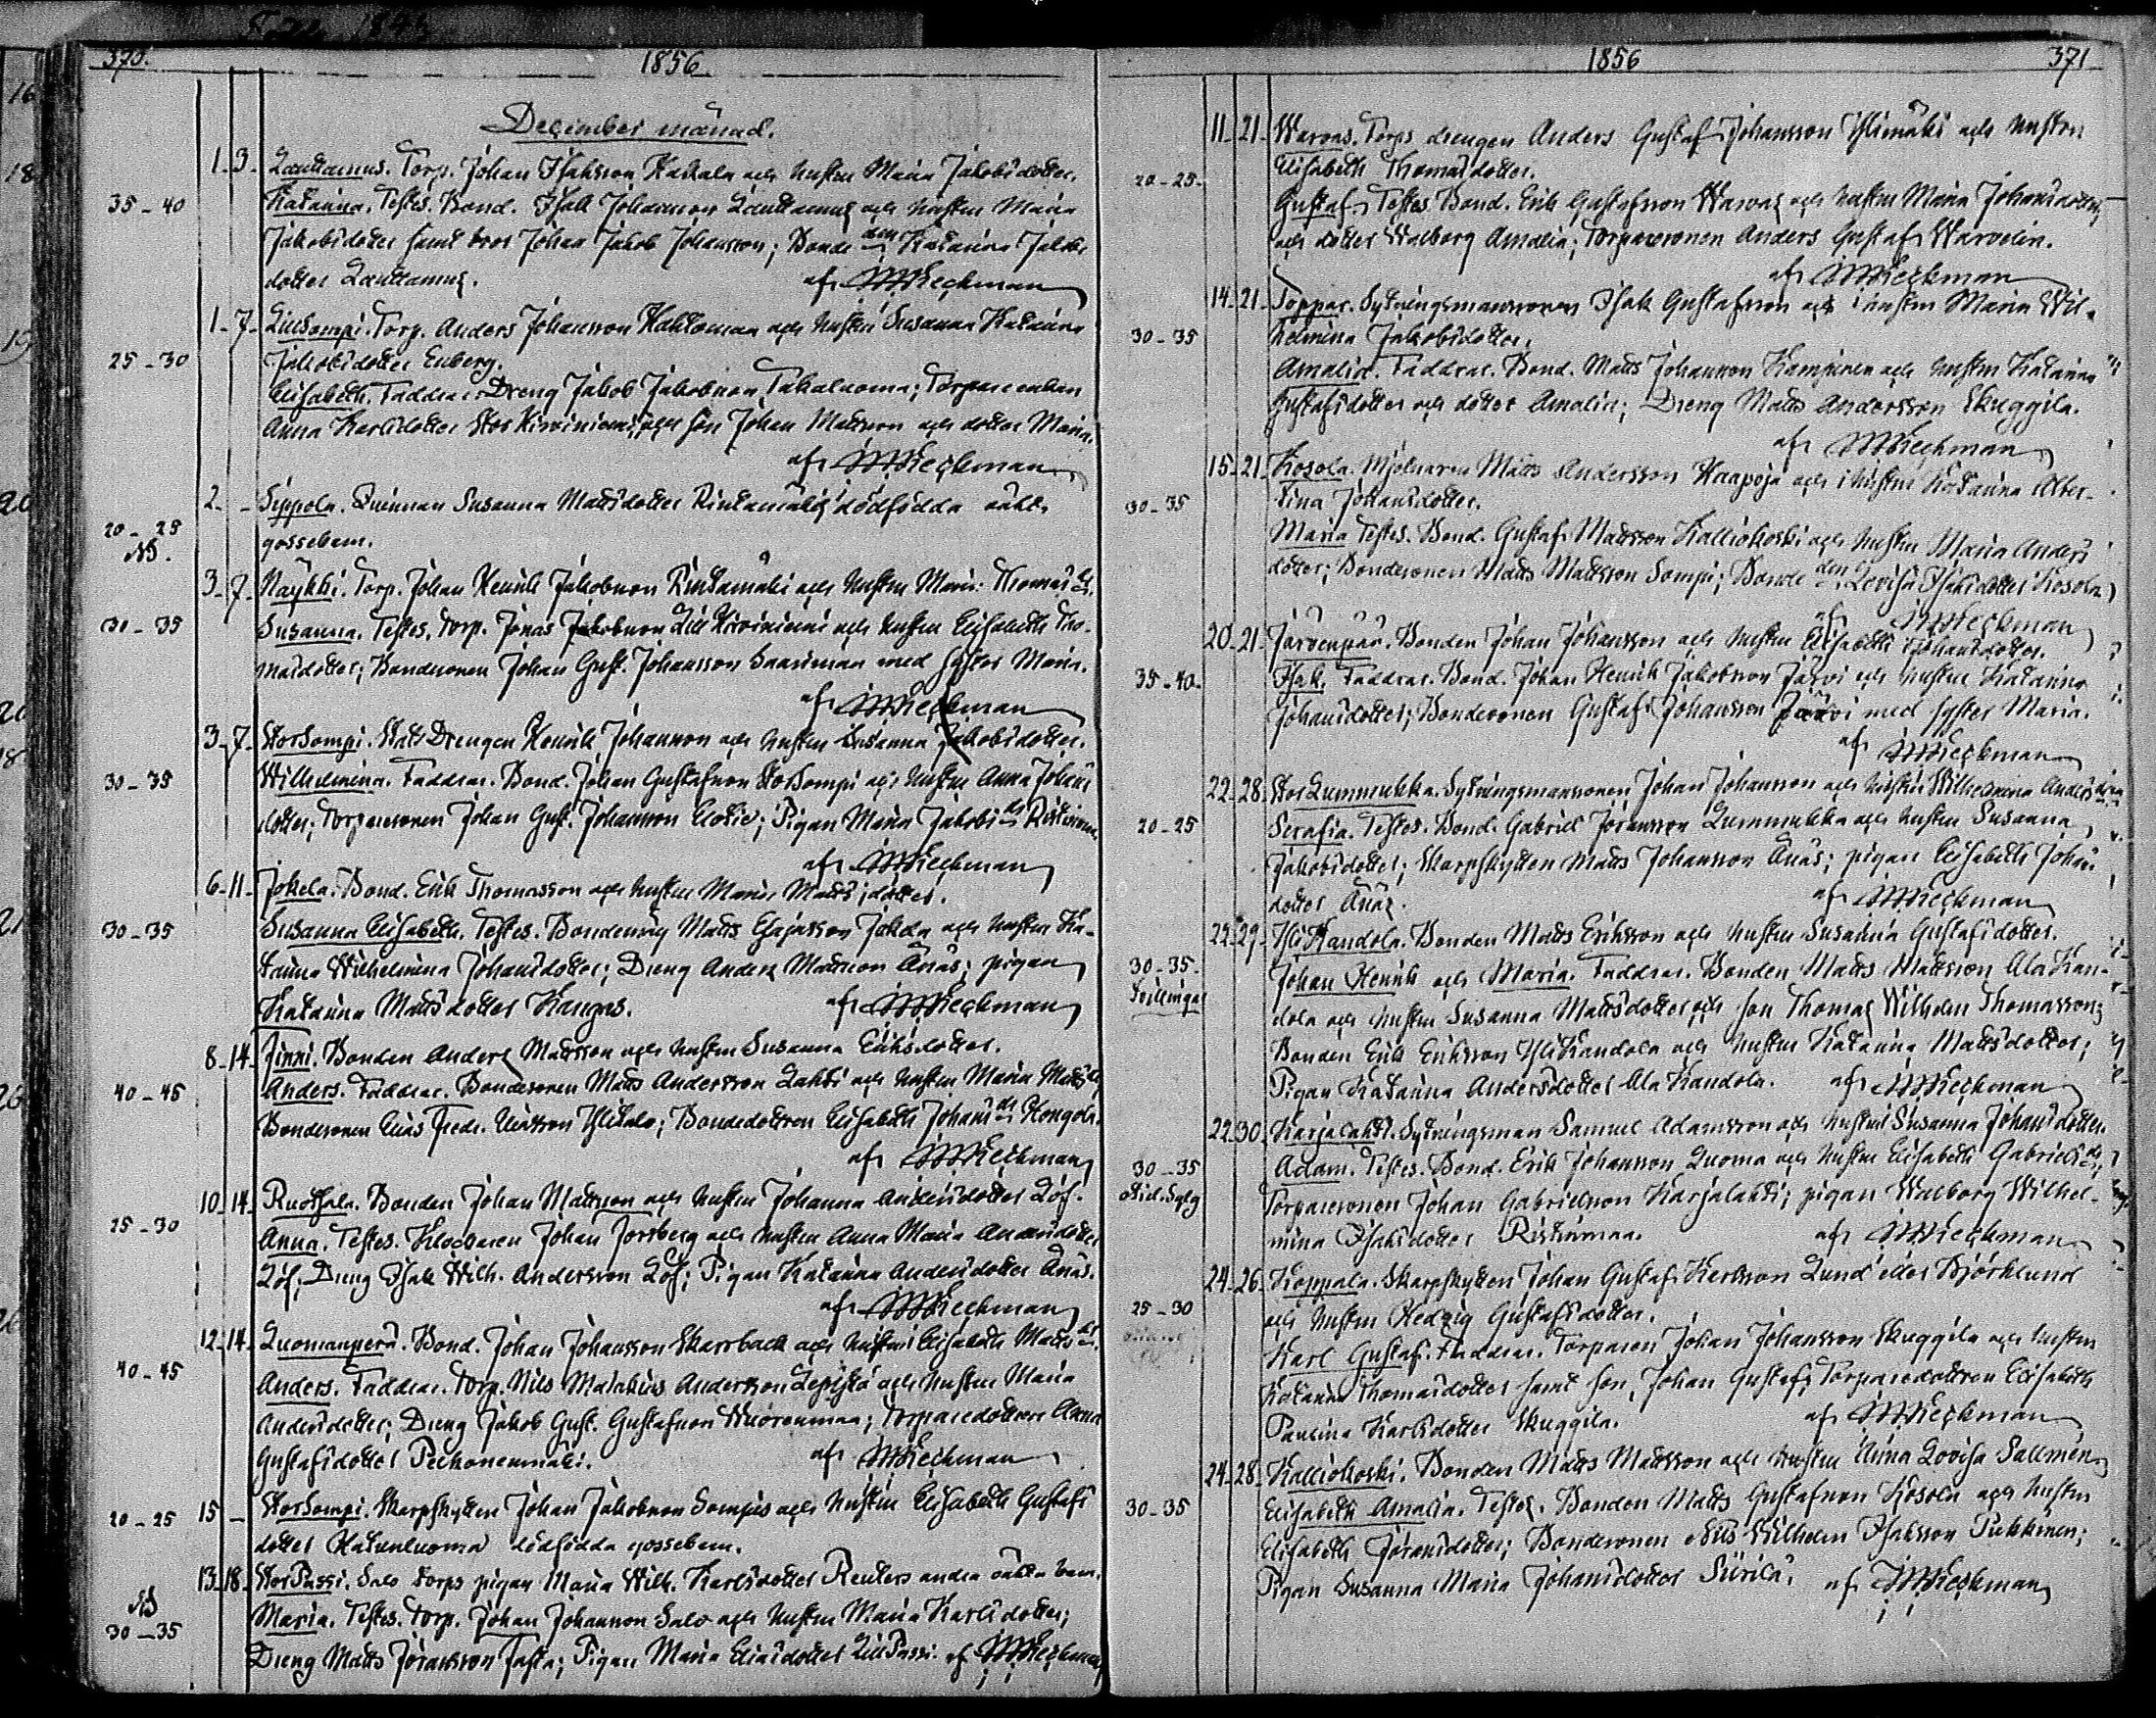 370.
1856.
December månad.
1. 3. Lauttamus. Torp. Johan Isaksson Kattala och hustru Maria Jakobsdotter.
35-40 Katarina. Testes. Bond. Isak Johansson Lauttamus och hustru Maria
Jakobsdotter samt bror Johan Jakob Johansson; Bonde den Katarina Jakobs
dotter Lauttamus. af IMKeckman
1. 7. Liusompi. Torp. Anders Johansson Kahtoman och hustru Susanna Katarina
25-30 Jakobsdotter Enberg.
Elisabeth. Faddrar Dreng Jakob Jakobsson; Torpare enkan
Anna Karlsdotter Stor Kirviniemi och son Johan Mattsson och dotter Maria.
af IMKeckman
2. - Seppola. Qvinnan Susanna Mattsdotter Rintamäkis dödfödda oäkta
20-25 gossebarn.
NB.
3. 7. Näykki. Torp. Johan Henrik Jakobsson Rintamäki och hustru Maria Thomas dr.
30-35 Susanna. Testes. Torp. Jonas Jakobsson Lill Kirviniemi och hustru Elisabeth Tho-
masdotter; Bondesonen Johan Gust. Johansson Saarimaa med syster Maria.
af IMKeckman
3. 7. StorSompi. Stats Drengen Henrik Johansson och hustru Susanna Jakobsdotter.
30-35 Wilhelmina. Faddrar. Bond. Johan Gustafsson StorSompi och hustru Anna Johans
dotter; Torparesonen Johan Gust. Johansson; Pigan Maria Jakobs dr
af IMKeckman
6. 11. Jokela. Bond. Erik Thomasson och hustru Maria Mattsdotter.
30-35 Susanna Elisabeth. Testes. Bondemåg Matts Esajasson Jokela och hustru Ka-
tarina Wilhelmina Johansdotter; Dreng Anders Mattsson Änäs; pigan
Katarina Mattsdotter Kangas. af IMKeckman
8. 14. Jinni. Bonden Anders Mattsson och hustru Susanna Eriksdotter.
40-45 Anders. Faddrar. Bondesonen Matts Andersson Lahti och hustru Maria Matts dr
Bondesonen Elias Fredr. Ylitalo; Bondedottren Elisabeth Johans dr Hongola.
af IMKeckman
10. 14. Ruotsala. Bonden Johan Mattsson och hustru Johanna Andersdotter Löf.
25-30 Anna. Testes. Klockaren Johan Forsberg och hustru Anna Maria Andersdotter
Löf; Dreng Isak Wilh. Andersson Löf; Pigan Katarina Andersdotter Änäs.
af IMKeckman
12. 14. Luomanperä. Bond. Johan Johansson Skarrback och hustru Elisabeth Matts dr.
40-45 Anders. Faddrar. Torp. Nils Malakias Andersson Leppistö och hustru Maria
Andersdotter; Dreng Jakob Gust. Gustafsson Wuorenmaa; Torparedottren Anna
Gustafsdotter Pelkonenmäki. af IMKeckman
15 - StorSompi. Skarpskytten Johan Jakobsson Sompis och hustru Elisabeth Gustafs
20-25 dotter Katunluoma dödfödda gossebarn.
13. 18. StorPassi. Salo torps pigan Maria Wilh. Karlsdotter Reuters andra oäkta barn.
NB Maria. Testes. Torp. Johan Johansson Salo och hustru Maria Karlsdotter;
30-35 Dreng Matts Göransson Jasta; Pigan Maria Eliasdotter LillPassi. af IMKeckman
1856
371
11. 21. Warvas. Torps drengen Anders Gustaf Johansson Ylimäki och hustru
20-25. Elisabeth Thomasdotter.
Gustaf. Testes. Bond. Erik Gustafsson Warvas och hustru Maria Johansdotter
och dotter Walborg Amalia; Torparesonen Anders Gustaf Warvelin.
af IMKeckman
14. 21. Toppar. Sytningsmanssonen Isak Gustafsson och hustru Maria Wil-
30-35 helmina Jakobsdotter.
Amalia. Faddrar. Bond. Matts Johansson Kampinen och hustru Katarina
Gustafsdotter och dotter Amalia; Dreng Matts Andersson Skuggila.
af IMKeckman
15. 21. Kosola. Mjölnaren Matts Andersson Haapoja och hustru Katarina Alber-
30-35 tina Johansdotter.
Maria Testes. Bond. Gustaf Mattsson Kalliokoski och hustru Maria Anders
dotter; Bondesonen Matts Mattsson Sompi; Bonde den Lovisa Isaksdotter Kosola
af IMKeckman
20. 21. Järvenpää. Bonden Johan Johansson och hustru Elisabeth Johansdotter.
35-40. Isak. Faddrar. Bond. Johan Henrik Jakobsson Järvi och hustru Katarina
Johansdotter; Bondesonen Gustaf Johansson Järvi med syster Maria.
af IMKeckman
22. 28. Stor Lummukka. Sytningsmanssonen Johan Johansson och hustru Wilhelmina Anders
20-25 Serafia. Testes. Bond. Gabriel Göransson Lummukka och hustru Susanna
Jakobsdotter; Skarpskytten Matts Johansson Änäs; pigan Elisabeth Johans
dotter Änäs. af IMKeckman
22. 29. Yli Kandola. Bonden Matts Eriksson och hustru Susanna Gustafsdotter.
30-35. Johan Henrik och Maria. Faddrar. Bonden Matts Mattsson Ala Kan-
Tvillingar dola och hustru Susanna Mattsdotter och son Thomas Wilhelm Thomasson;
Bonden Erik Eriksson Yli Kandola och hustru Katarina Mattsdotter;
Pigan Katarina Andersdotter Ala Kandola. af IMKeckman
22. 30. Karjalahti. Sytningsman Samuel Adamsson och hustru Susanna Johansdotter.
30-35 Adam. Testes. Bond. Erik Johansson Luoma och hustru Elisabeth Gabriels dr;
Torparesonen Johan Gabrielsson Karjalahti; pigan Walborg Wilhel-
mina Isaksdotter Ristimaa. af IMKeckman
24. 26. Koppala. Skarpskytten Johan Gustaf Karlsson Lund eller Björklund
25-30 och hustru Hedvig Gustafsdotter.
Karl Gustaf. Faddrar. Torparen Johan Johansson Skuggila och hustru
Katarina Thomasdotter samt son Johan Gustaf; Torparedottren Elisabeth
Paulina Karlsdotter Skuggila. af IMKeckman
24. 28. Kalliokoski. Bonden Matts Mattsson och hustru Anna Lovisa Sallmén
30-35 Elisabeth Amalia. Testes. Bonden Matts Gustafsson Kosola och hustru
Elisabeth Göransdotter; Bondesonen Nils Wilhelm Isaksson Pukkinen;
Pigan Susanna Maria Johansdotter Siirilä. af IMKeckman